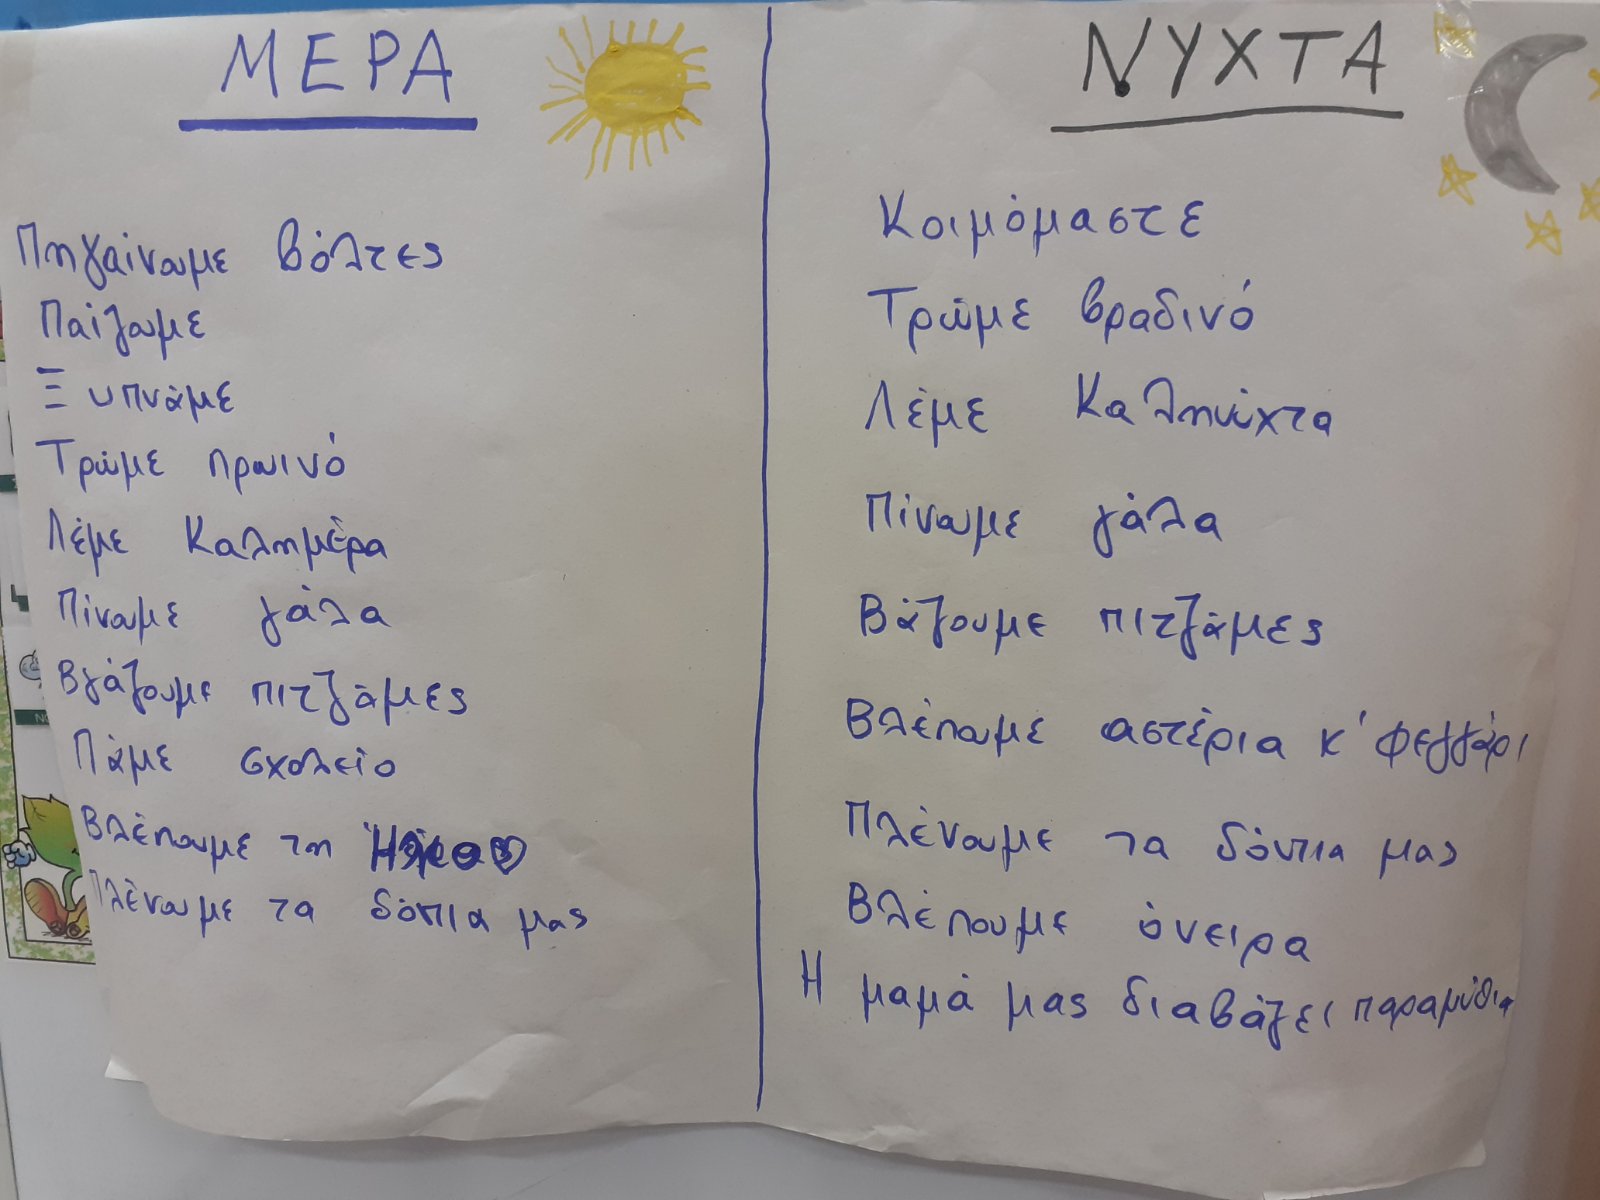 ΜΕΡΑ
Πηγαίνουμε βόλτες
Παίζουμε
Ξυπνάμε
Τρώμε πρωινό
Λέμε Καλημέρα
Πίνουμε γάλα
Βγάζουμε πιτζάμες
Πάμε σχολείο
Βλέπουμε τη
Πλένουμε τα δόπια μας
ΝΥΧΤΑ
Κοιμόμαστε
Τρώμε βραδινό
Λέμε Καληνύχτα
Πίνουμε γάλα
Βάζουμε πιτζάμες
Βλέπουμε αστέρια κ' φεγγάρι
Πλένουμε τα δόντια μας
Βλέπουμε όνειρα
Η μαμά μας διαβάζει παραμύθια